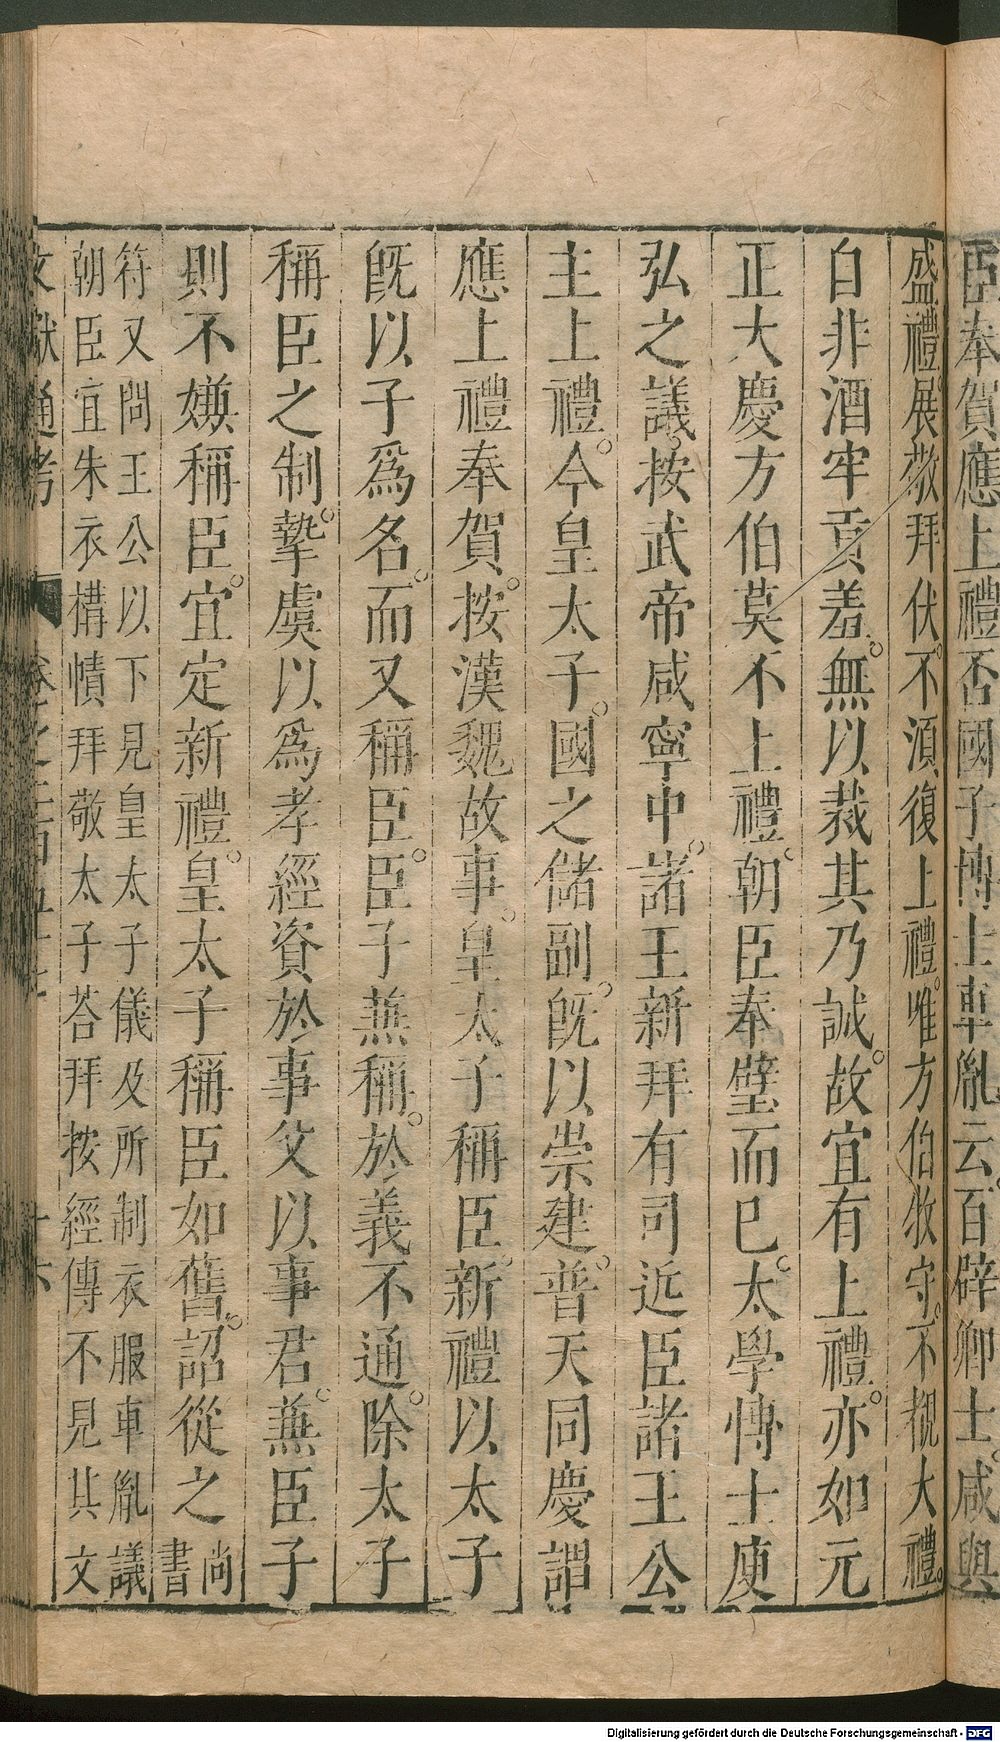 臣奉賀應上禮否國子博士車胤云百辟卿士咸與
盛禮展敬拜伏不須復上禮唯方伯牧守不覩大禮
自非酒牢貢羞無以表其乃誠故宜有上禮亦如元
正大慶方伯莫不上禮朝臣奉璧而已太學博士庾
弘之議按武帝咸寧中諸王新拜有司近臣諸王公
主上禮今皇太子國之儲副旣以崇建普天同慶謂
應上禮奉賀按漢魏故事皇太子稱臣新禮以太子
旣以子爲名而又稱臣臣子兼稱於義不通除太子
稱臣之制摯虞以爲孝經資於事父以事君兼臣子
則不嫌稱臣宜定新禮皇太子稱臣如舊詔從之尚書
符又問王公以下見皇太子儀及所制衣服車胤議
朝臣宜朱衣褠幘拜敬太子荅拜按經傳不見其文
文獻通考
卷之二百五十七
十六
Digitalisierung gefördert durch die Deutsche Forschungsgemeinschaft - DFG